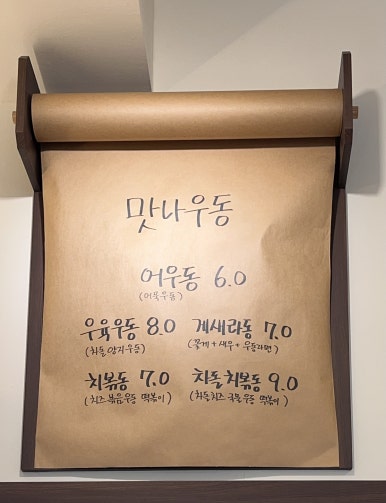 맛나우동
어우동 6.0
(어묵우동)
우육우동 8.0 게새라동 7.0
(차돌양지우동) (꽃게+새우+우동라면)
치볶동 7.0 차돌치볶동 9.0
(치즈볶음우동 떡볶이) (차돌치즈 국물우동 떡볶이)